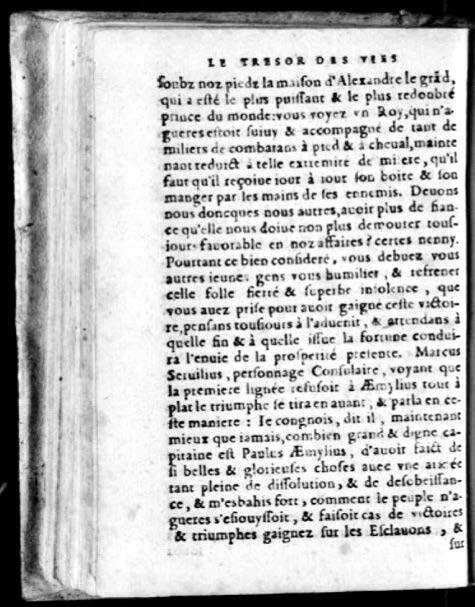 LE TRESOR DES VIES
soubz noz piedz la maison d'Alexandre le grãd,
qui a esté le plus puissant & le plus redoubté
prince du monde: vous voyez vn Roy, qui n'a-
gueres estoit suiuy & accompagné de tant de
miliers de combatans à pied & à cheual, mainte
nant reduict à telle extremité de misere, qu'il
faut qu'il reçoiue iour à iour son boire & son
manger par les mains de ses ennemis. Deuons
nous doncques nous autres, auoir plus de fian-
ce qu'elle nous doiue non plus demourer tous-
iours fauorable en noz affaires? certes nenny.
Pourtant ce bien consideré, vous debuez vous
autres ieunes gens vous humilier, & refrener
celle folle fierté & superbe insolence, que
vous auez prise pour auoir gaigné ceste victoi-
re, pensans tousiours à l'aduenir, & attendans à
quelle fin & à quelle issue la fortune condui-
ra l'enuie de la prosperité presente. Marcus
Seruilius, personnage Consulaire, voyant que
la premiere lignée refusoit à Æmylius tout à
plat le triumphe se tira en auant, & parla en ce-
ste maniere: Ie congnois, dit il, maintenant
mieux que iamais, combien grand & digne ca-
pitaine est Paulus Æmylius, d'auoir faict de
si belles & glorieuses choses auec vne armée
tant pleine de dissolution, & de desobeissan-
ce, & m'esbahis fort, comment le peuple n'a-
gueres s'esiouyssoit, & faisoit cas de victoires
& triumphes gaignez sur les Esclauons, &
sur